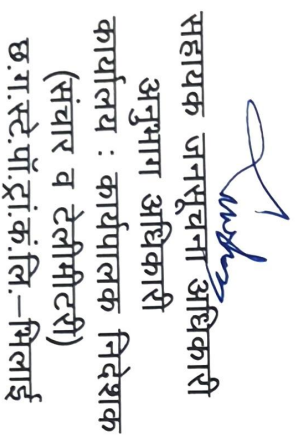 सहायक जनसूचना अधिकारी
अनुभाग अधिकारी
कार्यालय : कार्यपालक निदेशक
(संचार व टेलीमीटरी)
छ.ग.स्टे.पॉ.ट्रां.कं.लि.–भिलाई